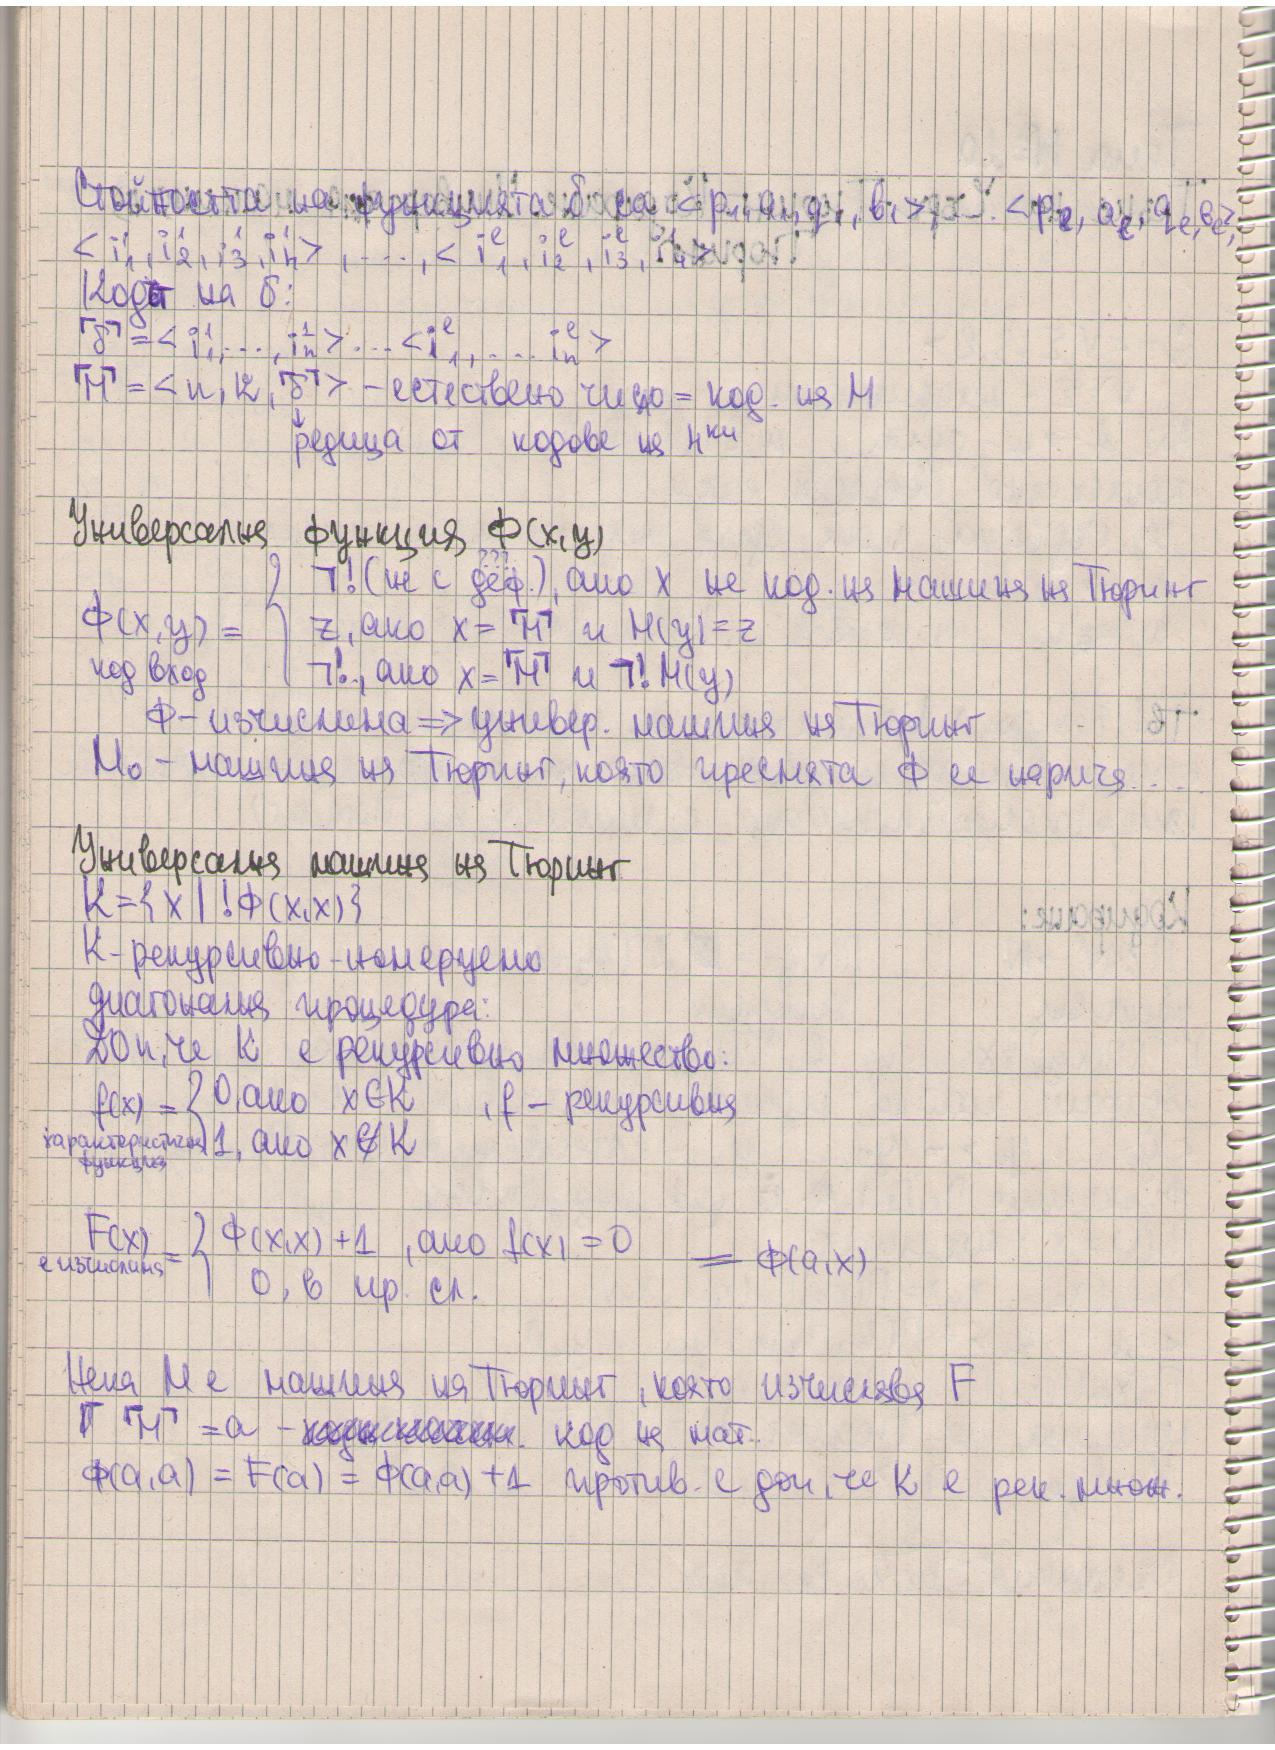 Стойността на функцията δ са <p₁, a₁, q₁, b₁> ... <pₑ, aₑ, qₑ, bₑ>,
<i₁¹, i₂¹, i₃¹, i₄¹>, ...., <i₁ᵉ, i₂ᵉ, i₃ᵉ, i₄¹>
Кодът на δ:
⌜δ⌝ = <i₁¹, ..., iₙ¹> ... <i₁ᵉ, .... iₙᵉ>
⌜M⌝ = <n, k, ⌜δ⌝> - естествено число = код. на M
↓
редица от кодове на 4ки
Универсална функция Ф(x,y)
Ф(x,y) = { ¬! (не е деф.), ако x не код. на машина на Тюринг
???
z, ако x = ⌜M⌝ и M(y) = z
код вход ¬!, ако x = ⌜M⌝ и ¬! M(y)
Ф - изчислима => универ. машина на Тюринг
M₀ - машина на Тюринг, която пресмята Ф се нарича ....
Универсална машина на Тюринг
K = {x | !Ф(x,x)}
K - рекурсивно-номеруемо
диагонална процедура:
Доп, че K е рекурсивно множество:
f(x) = { 0, ако x ∈ K , f - рекурсивна
характеристична функция 1, ако x ∉ K
F(x) = { Ф(x,x) + 1, ако f(x) = 0 = Ф(a,x)
е изчислима 0, в пр. сл.
Нека M е машина на Тюринг, която изчислява F
⌜M⌝ = a - код на маш.
Ф(a,a) = F(a) = Ф(a,a) + 1 против. с доп, че K е рек. множ.